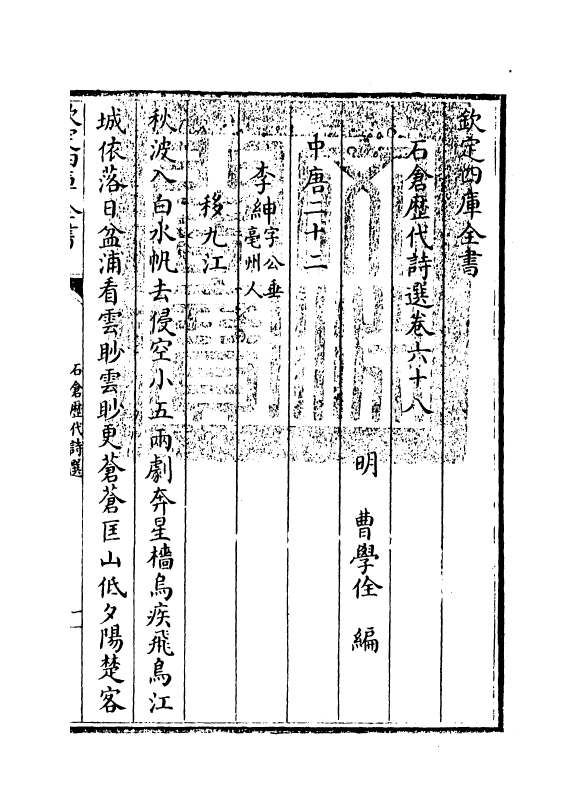 欽定四庫全書
石倉歴代詩選卷六十八
明 曹學佺 編
中唐二十二
李紳字公垂亳州人
移九江
秋波入白水帆去侵空小五兩劇奔星檣烏疾飛鳥江
城依落日盆浦看雲眇雲眇更蒼蒼匡山低夕陽楚客
欽定四庫全書
石倉歴代詩選
一